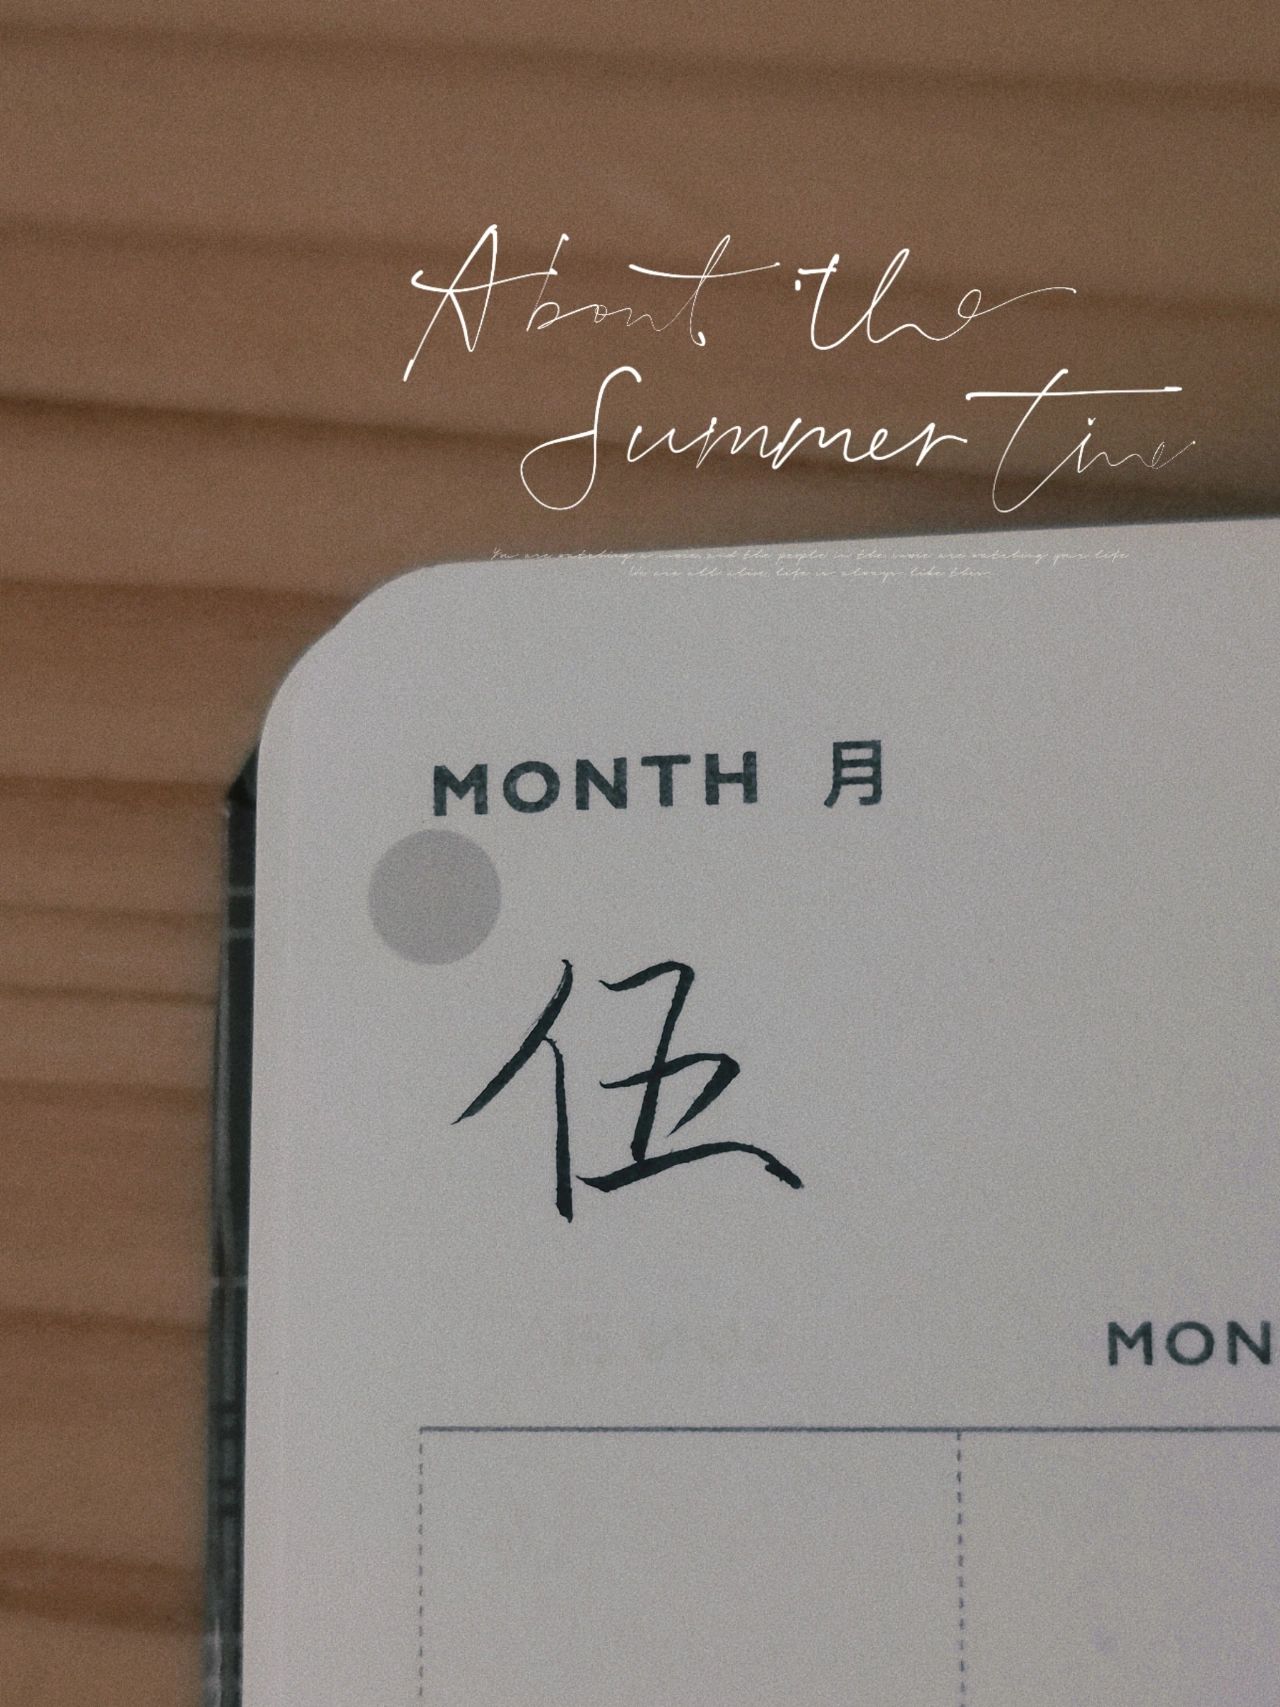 About the
Summer Time
You are watching a movie and the people in the movie are watching your life
We are all alive, life is always like this.
MONTH 月
伍
MON